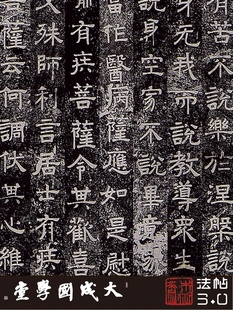 說樂於涅槃說
身无我而說教導眾生
說身空寂不說畢竟寂
當作醫病薩應如是慰
喻有疾菩薩令其歡喜
文殊師利言居士有疾
菩薩云何調伏其心維
大成國學堂
法帖
3.0